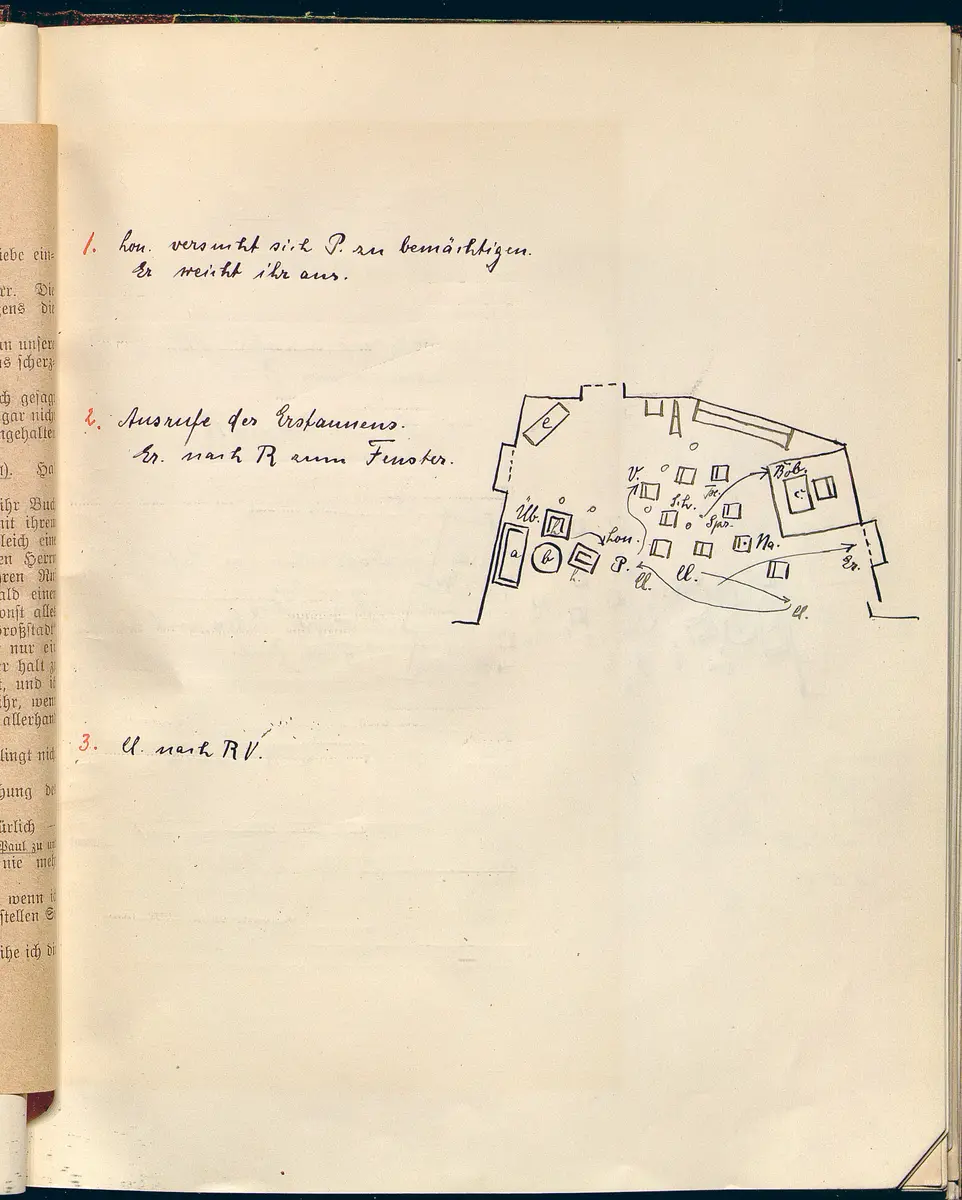 iebe ein=
rr. Die
gens die
an unser
as scherz=
ch gesag
gar nich
ngehalte
Ha
ihr Buch
nit ihrem
leich eine
en Herrn
hren
ald eine
onst alle
roßstadt
nur ei
er halt
t, und i
ihr, wen
allerhan
lingt nich
hung de
ürlich –
Paul zu
nie meh
wenn i
stellen S
ihe ich di
1. Lon. versucht sich P. zu bemächtigen.
Er weicht ihr aus.
2. Ausrufe des Erstaunens.
Er. nach R zum Fenster.
3. Cl. nach R V.
e
V.
Böb.
c
Sch.
Üb.
Spr.
a
b
Lon.
Na.
h.
P.
Cl.
Cl.
Er.
Cl.